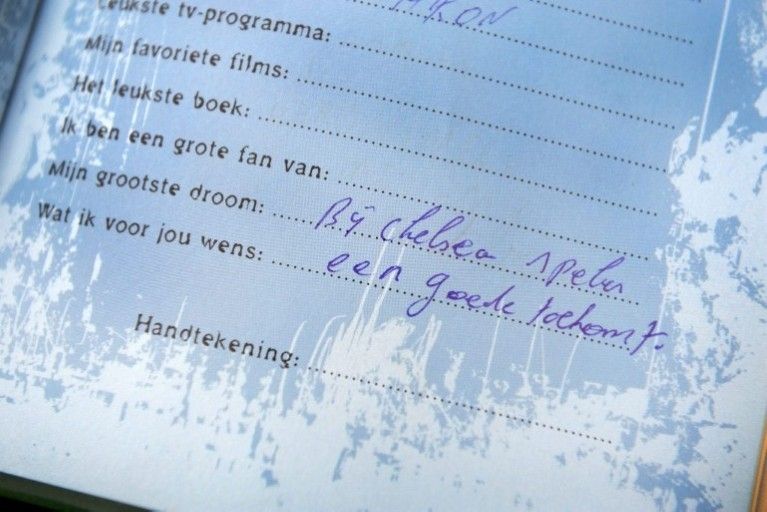 Leukste tv-programma:
Mijn favoriete films:
Het leukste boek:
Ik ben een grote fan van:
Mijn grootste droom: Bij chelsea spelen
Wat ik voor jou wens: een goede toekomst.
Handtekening: